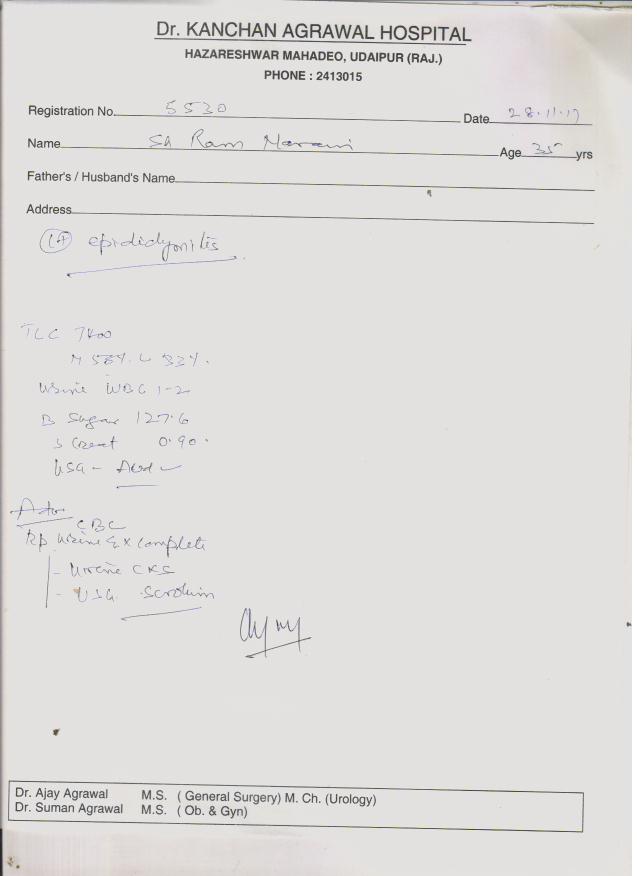 Dr. KANCHAN AGRAWAL HOSPITAL
HAZARESHWAR MAHADEO, UDAIPUR (RAJ.)
PHONE : 2413015
Registration No. 5530 Date 28.11.17
Name Ram Age 35 yrs
Father's / Husband's Name
Address
epididymitis
TLC 7400
58%. L 33%.
Urine WBC 1-2
B Sugar 127.6
S Creat 0.90.
USG -
CBC
Rp Urine Ex Complete
- Urine C&S
- USG Scrotum
Dr. Ajay Agrawal M.S. ( General Surgery) M. Ch. (Urology)
Dr. Suman Agrawal M.S. ( Ob. & Gyn)